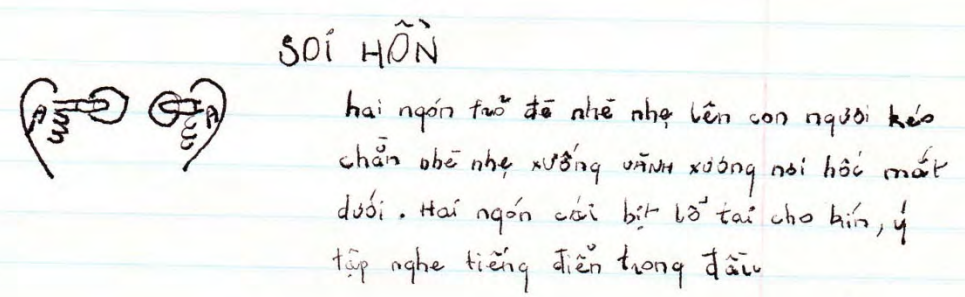 SOI HỒN
hai ngón trỏ đê nhè nhẹ lên con người kéo
chẳn nhè nhẹ xuống vÀNH xương nơi hốc mắt
dưới. Hai ngón cái bịt lổ tai cho kín, ý
tập nghe tiếng điển trong đầu